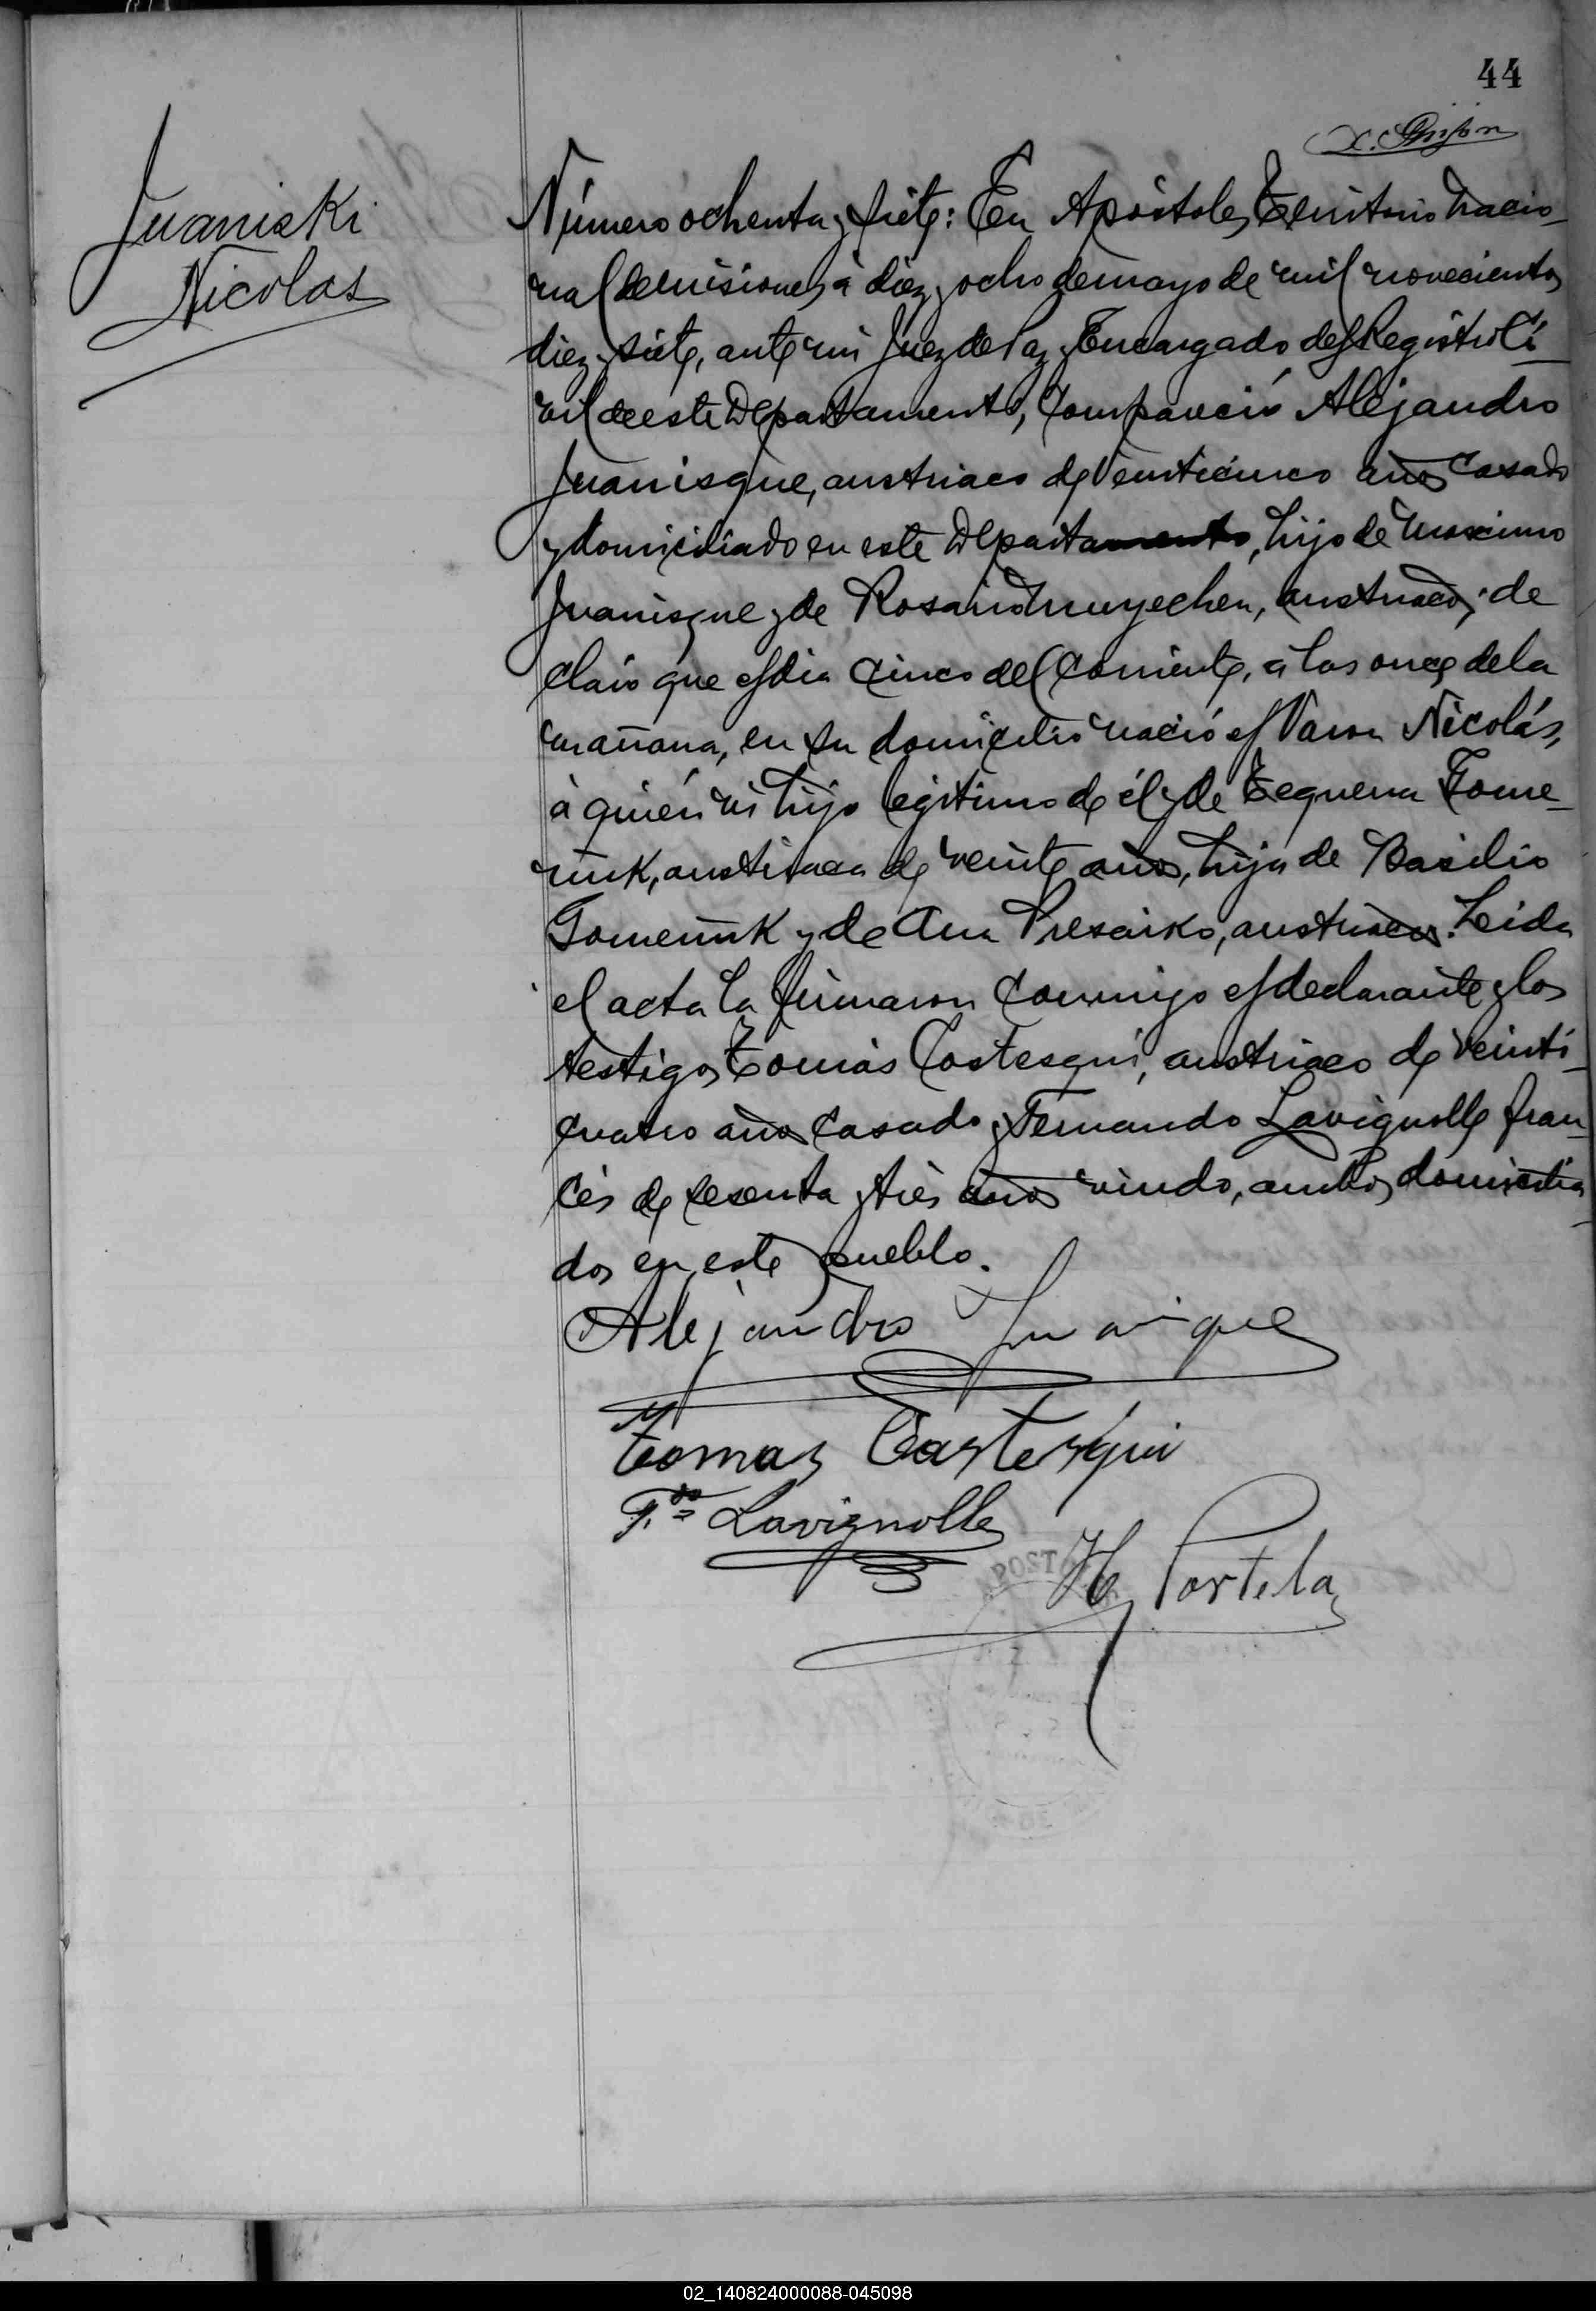 44
Juaniski
Nicolas
Número ochenta y siete: En Apóstoles Territorio Nacio-
nal de Misiones, á diez y ocho de mayo de mil novecientos
diez y siete, ante mi Juez de Paz y Encargado del Registro Ci-
vil de este Departamento, Compareció Alejandro
Juanisque, austriaco de Veinticinco años casado
y domiciliado en este Departamento, hijo de Maximo
Juanisque y de Rosa, austriacos; de
claró que el dia Cinco del Corriente, á las once de la
mañana, en su domicilio nació el Varon Nicolás,
á quién vi hijo legitimo de él y de Tequena Tome-
niuk, austriaca de veinte años, hija de Basilio
Tomeniuk y de Ana Presaiko, austriacos. Leida
el acta la firmaron Conmigo el declarante y los
testigos Tomás Costesqui, austriaco de Veinti-
cuatro años Casado y Fernando Lavignolle fran-
cés de sesenta y tres años viudo, ambos domicilia-
dos en este pueblo.
Alejandro Juanique
Tomas Castesqui
F.do Lavignolle
H Portela
02_140824000088-045098